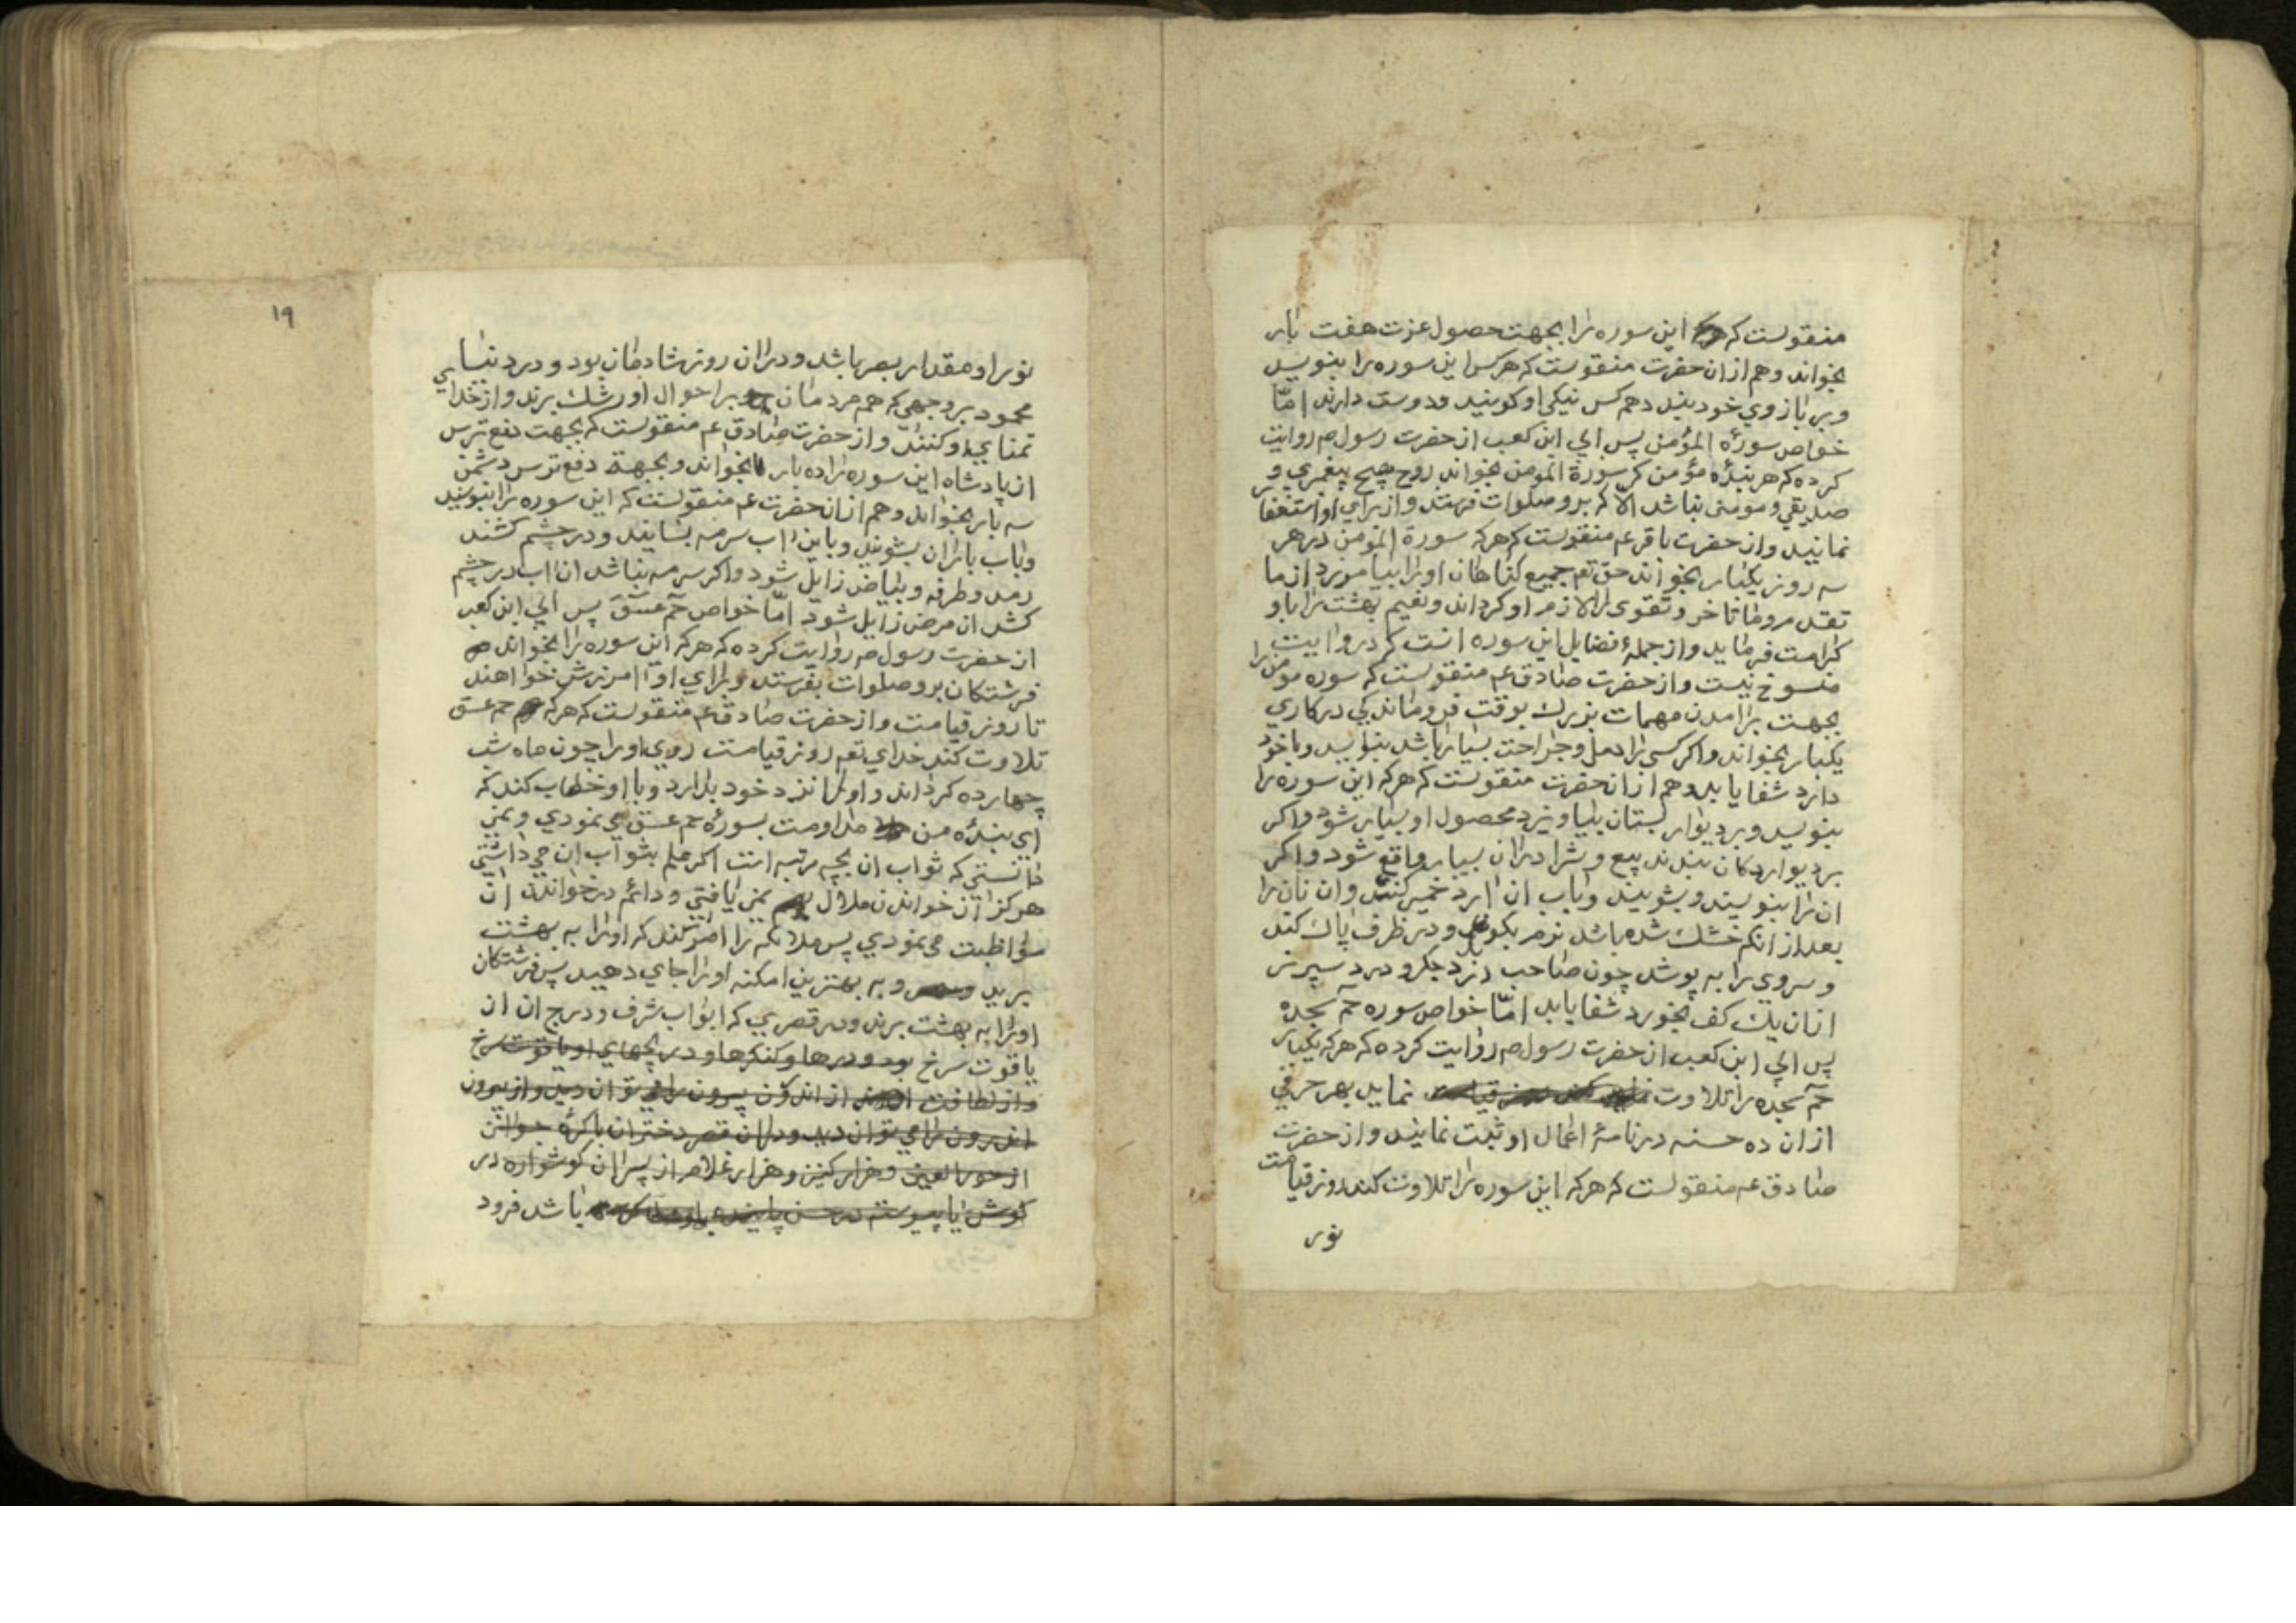 منقولست که این سوره را بجهت حصول عزت هفت بار
بخواند و هم از ان حضرت منقولست که هرکس این سوره را بنویسد
و بر بازوی خود بندد همه کس نیکی او کویند و دوست دارند امّا
خواص سورهٔ المؤمن پس ابی ابن کعب از حضرت رسول ص روایت
کرده که هر بندهٔ مؤمن که سورة المومن بخواند روح هیچ پیغمبری و
صدیقی و مومنی نباشد الا که برو صلوات فرستد و از برای او استغفار
نمایند و از حضرت باقر ع منقولست که هرکه سورة المومن در هر
سه روز یکبار بخواند حق تع جمیع کناهان او را بیامرزد از ما
تقدم و ما تاخر و تقوی را لازم او کرداند و نعیم بهشت را باو
کرامت فرماید و از جملهٔ فضایل این سوره انست که در و آیت
منسوخ نیست و از حضرت صادق ع منقولست که سوره مومن را
بجهت برامدن مهمات بزرك بوقت فروماندکی در کاری
یکبار بخواند و اکر کسی را دمل و جراحت بسیار باشد بنویسد و با خود
دارد شفا یابد و هم از انحضرت منقولست که هرکه این سوره را
بنویسد و بر دیوار بستان بیاویزد محصول او بسیار شود و اکر
بر دیوار دکان بندند بیع و شرا در ان بسیار واقع شود و اکر
ان را بنویسند و بشویند و باب ان ارد خمیر کنند و ان نان را
بعد از انکه خشك شده باشد نرم بکوبد و در ظرف پاك کند
و سروی را به پوشد چون صاحب درد جکر و درد سپرز
از ان یك کف بخورد شفا یابد امّا خواص سوره حم سجده
پس ابی ابن کعب از حضرت رسول ص روایت کرده که هرکه یکبار
حم سجده را تلاوت نماید بهر حرفی
از ان ده حسنه در نامهٔ اعمال او ثبت نمایند و از حضرت
صادق ع منقولست که هرکه این سوره را تلاوت کند روز قیامت
نور
۱۹
نور او مقدار بصر باشد و در ان روز شادمان بود و در دنیا
محمود بر وجهی که همه مردمان بر احوال او رشك برند و از خدای
تمنای او کنند و از حضرت صادق ع منقولست که بجهت دفع ترس
از پادشاه این سوره را ده بار بخواند و بجهة دفع ترس دشمن
سه بار بخواند و هم از ان حضرت ع منقولست که این سوره را بنویسند
و باب باران بشویند و باین اب سرمه بسایند و در چشم کشند
رمد و طرفه و بیاض زایل شود و اکر سرمه نباشد ان اب در چشم
کشد ان مرض زایل شود امّا خواص حم عسق پس ابی ابن کعب
از حضرت رسول ص روایت کرده که هرکه این سوره را بخواند
فرشتکان برو صلوات بفرستد و برای او آمرزش خواهند
تا روز قیامت و از حضرت صادق ع منقولست که هرکه حم عسق
تلاوت کند خدای تع روز قیامت روی او را چون ماه شب
چهارده کرداند و او را نزد خود بدارد و با او خطاب کند که
ای بندهٔ من مداومت بسورهٔ حم عسق می نمودی و نمی
دانستی که ثواب ان بچه مرتبه است اکر علم بثواب ان می داشتی
هرکز از خواندن ملال نمی یافتی و دائم در خواندن ان
مواظبت می نمودی پس ملائکه را امر کند که او را به بهشت
برید و به بهترین امکنه او را جای دهید پس فرشتکان
او را به بهشت برند و در قصری که ابواب شرف و درج ان از
یاقوت سرخ بود و درها و کنکرها و دریچهای او یاقوت سرخ
و از لطافت از اندرون بیرون را می توان دید و از بیرون
اندرون را می توان دید و در ان قصر دختران باکرهٔ جوانتن
از حور العین و هزار کنیز و هزار غلام از پسران کوشواره در
کوش تا پیوسته در حسن پاینده باشد فرود